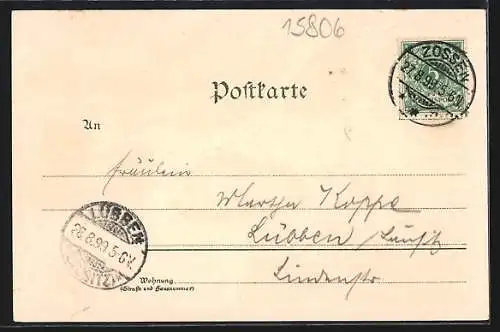 15806
Postkarte
ZOSSEN
27.8.99. 5-6N
An
Fräulein
Martha Koppe
Lübben Lausitz
Lindenstr
LÜBBEN
28.8.99. 5-6V.
(LAUSITZ)
Wohnung
(Straße und Hausnummer)